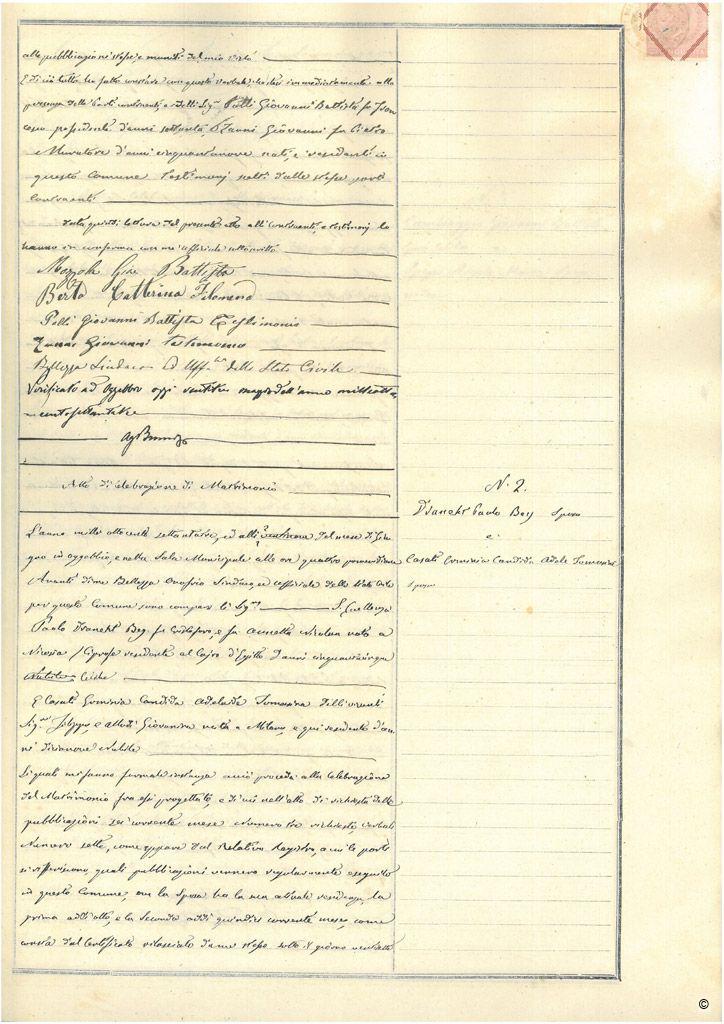 alle pubblicazioni stesse e muniti del mio visto
E di ciò tutto ho fatto constare con questo verbale, che lessi immediatamente alla
presenza delle Parti contraenti, e delli Sig.ri Polli Giovanni Battista fu Fran
cesco possidente d'anni settanta, Zanni Giovanni fu Pietro
e Muratore d'anni cinquantanove nati, e residenti in
questo Comune Testimonj scelti dalle stesse parti
contraenti
Data quindi lettura del presente atto alli contraenti, e testimonj lo
hanno in conferma con me Ufficiale sottoscritto
Mazzola Gio. Battista
Berta Catterina Filomena
Polli Giovanni Battista Testimonio
Zanni Giovanni Testimonio
Bellezza Sindaco Ed Uff.le dello Stato Civile
Verificato ad Oggebbio oggi ventitre maggio dell'anno milleotto
centosettantatre
Atto di Celebrazione di Matrimonio
N. 2.
Draneht Paolo Bey Sposo
e
Casati Erminia Candida Adele Tommasina
Sposa
L'anno mille ottocento settantatre, ed alli ventuno del mese di Giu
gno in Oggebbio, e nella Sala Municipale alle ore quattro pomeridiane
Avanti di me Bellezza Onofrio Sindaco, ed Ufficiale dello Stato Civile
per questo Comune sono comparsi li Sig.ri S. Eccellenza
Paolo Draneht Bey fu Cristoforo, e fu Annetta Nicolaa nato a
Nicosia / Cipro / e residente al Cairo d'Egitto d'anni cinquantacinque
Celibe
E Casati Erminia Candida Adelaide Tommasina delli viventi
Sig.ri Filippo, e Giovanna nata a Milano, e qui residente d'an
ni diecinove Nubile
Li quali mi fanno formale instanza a ciò proceda alla Celebrazione
del Matrimonio fra essi progettato, e di cui nell'atto di richiesta delle
pubblicazioni sei corrente mese Numero tre richieste verbali
Numero sette, come appare dal Relativo Registro, a cui le parti
si riferiscono, quali pubblicazioni vennero regolarmente eseguite
in questo Comune, ove la Sposa ha la sua attuale residenza, la
prima addì otto, e la Seconda addì quindici corrente mese, come
consta dal Certificato rilasciato da me stesso sotto il giorno